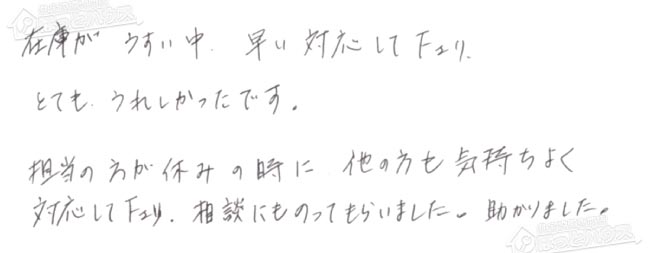 在庫が うすい中、早い対応して下さり、
とても、うれしかったです。
担当の方が休みの時に 他の方も気持ちよく
対応して下さり、相談にものってもらいました。助かりました。